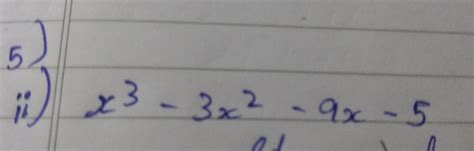 5)
ii) x³ - 3x² - 9x - 5